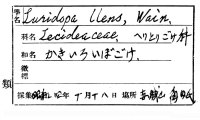 学名 Luridopa llens, Wain.
科名 Lecideaceae. へりとりごけ科
和名 かきいろいぼごけ.
徴標
類
採集 昭和 12年 5月18日 場所